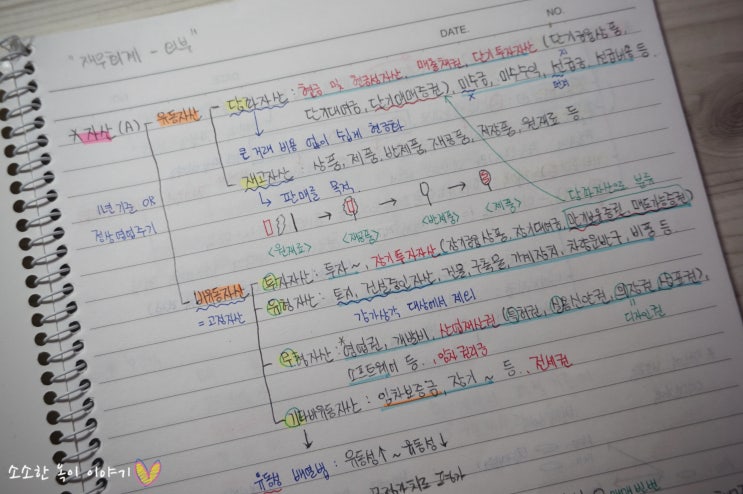 DATE.
NO.
"재무회계 - 이부"
* 자산 (A)
유동자산
당좌자산 : 현금 및 현금성자산, 매출채권, 단기투자자산 (단기금융상품,
단기대여금, 단기매매증권), 미수금, 미수수익, 선급금, 선급비용 등.
큰 거래 비용 없이 쉽게 현금화
재고자산 : 상품, 제품, 반제품, 재공품, 저장품, 원재료 등.
↳ 판매를 목적
1년기준 OR
정상영업주기
<원재료> → <재공품> → <반제품> → <제품>
당좌자산으로 분류
비유동자산
= 고정자산
투자자산 : 투자~, 장기투자자산 (장기금융상품, 장기대여금, 만기보유증권, 매도가능증권)
유형자산 : 토지, 건설중인자산, 건물, 구축물, 기계장치, 차량운반구, 비품 등.
감가상각 대상에서 제외
무형자산 : *영업권, 개발비, 산업재산권 (특허권, 실용신안권, 의장권, 상표권),
디자인권
소프트웨어 등., 임차권리금
기타비유동자산 : 임차보증금, 장기~ 등., 전세권
유동성 배열법 : 유동성↑ ~ 유동성↓
소소한 옥이 이야기